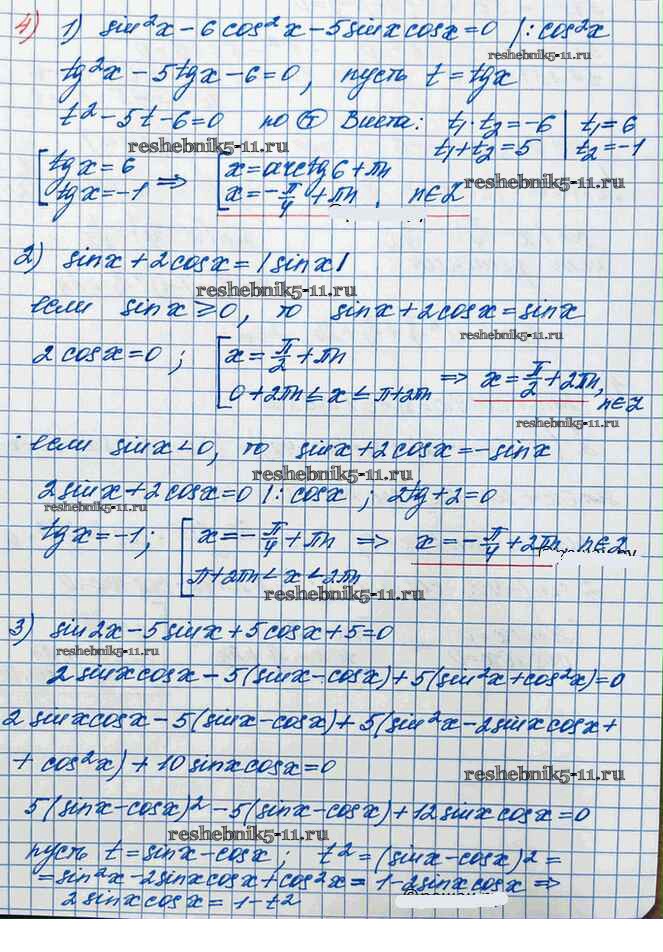 4) 1) sin²x - 6cos²x - 5sinxcosx = 0 /: cos²x
reshebnik5-11.ru
tg²x - 5tgx - 6 = 0, пусть t = tgx
t² - 5t - 6 = 0 по Ⓣ Виета: t₁·t₂ = -6 | t₁ = 6
reshebnik5-11.ru
t₁ + t₂ = 5 | t₂ = -1
[ tgx = 6 => [ x = arctg6 + πn
reshebnik5-11.ru
tgx = -1 x = -π/4 + πn, n∈Z
2) sinx + 2cosx = |sinx|
reshebnik5-11.ru
если sinx ≥ 0, то sinx + 2cosx = sinx
reshebnik5-11.ru
2cosx = 0; [ x = π/2 + πn
0 + 2πn ≤ x ≤ π + 2πn => x = π/2 + 2πn, n∈Z
reshebnik5-11.ru
если sinx < 0, то sinx + 2cosx = -sinx
reshebnik5-11.ru
2sinx + 2cosx = 0 /: cosx; 2tg + 2 = 0
reshebnik5-11.ru
tgx = -1; [ x = -π/4 + πn => x = -π/4 + 2πn, n∈Z
π + 2πn < x < 2πn
reshebnik5-11.ru
3) sin2x - 5sinx + 5cosx + 5 = 0
reshebnik5-11.ru
2sinxcosx - 5(sinx - cosx) + 5(sin²x + cos²x) = 0
2sinxcosx - 5(sinx - cosx) + 5(sin²x - 2sinxcosx +
+ cos²x) + 10sinxcosx = 0
reshebnik5-11.ru
5(sinx - cosx)² - 5(sinx - cosx) + 12sinxcosx = 0
reshebnik5-11.ru
пусть t = sinx - cosx; t² = (sinx - cosx)² =
= sin²x - 2sinxcosx + cos²x = 1 - 2sinxcosx =>
2sinxcosx = 1 - t²